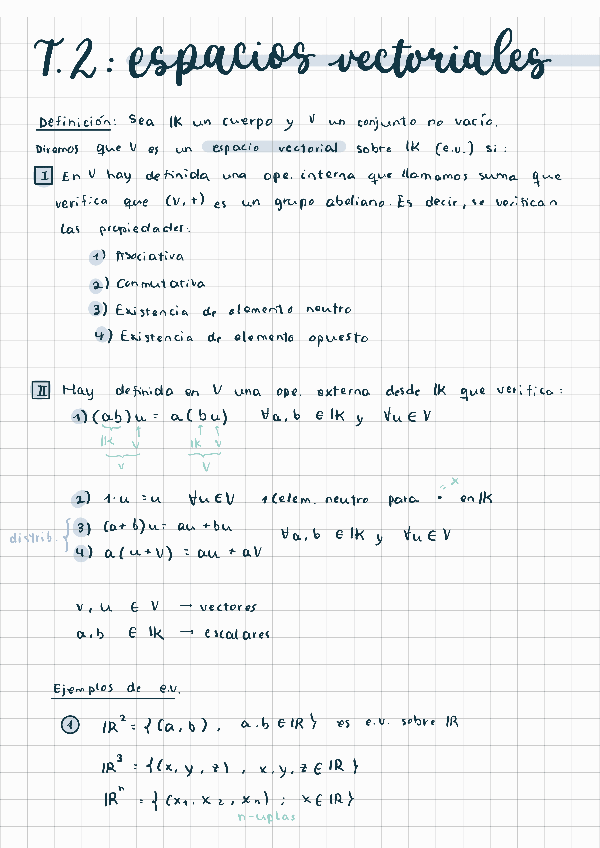 T.2: espacios vectoriales
Definición: Sea IK un cuerpo y V un conjunto no vacío.
Diremos que V es un espacio vectorial sobre IK (e.v.) si:
I En V hay definida una ope. interna que llamamos suma que
verifica que (V,+) es un grupo abeliano. Es decir, se verifican
las propiedades:
1) Asociativa
2) Conmutativa
3) Existencia de elemento neutro
4) Existencia de elemento opuesto
II Hay definida en V una ope. externa desde IK que verifica:
1) (ab)u = a(bu) ∀a,b ∈ IK y ∀u ∈ V
IK V IK V
V V
2) 1·u = u ∀u ∈ V 1 (elem. neutro para · en IK
= x
distrib. 3) (a+b)u = au + bu ∀a,b ∈ IK y ∀u ∈ V
4) a(u+v) = au + aV
v, u ∈ V → vectores
a,b ∈ IK → escalares
Ejemplos de e.v.
1 IR² = {(a,b), a.b ∈ IR} es e.v. sobre IR
IR³ = {(x, y, z), x,y,z ∈ IR}
IRⁿ = {(x₁, x₂, xₙ); x ∈ IR}
n-uplas